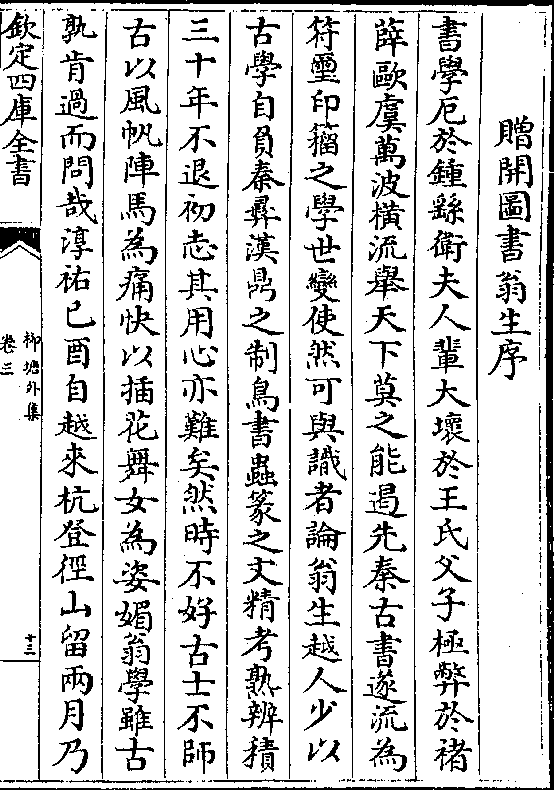 贈開圖書翁生序
書學厄於鍾繇衛夫人輩大壞於王氏父子極弊於褚
薛歐虞萬波橫流舉天下莫之能遏先秦古書遂流為
符璽印籀之學世變使然可與識者論翁生越人少以
古學自負秦彞漢鼎之制鳥書蟲篆之文精考熟辨積
三十年不退初志其用心亦難矣然時不好古士不師
古以風帆陣馬為痛快以插花舞女為姿媚翁學雖古
孰肯過而問哉淳祐己酉自越來杭登徑山留兩月乃
欽定四庫全書
柳塘外集
卷三
十三